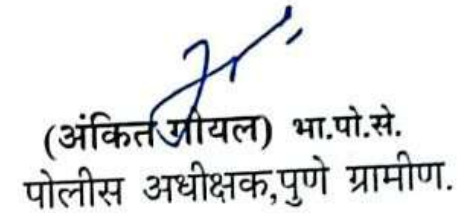 (अंकित गोयल) भा.पो.से.
पोलीस अधीक्षक,पुणे ग्रामीण.